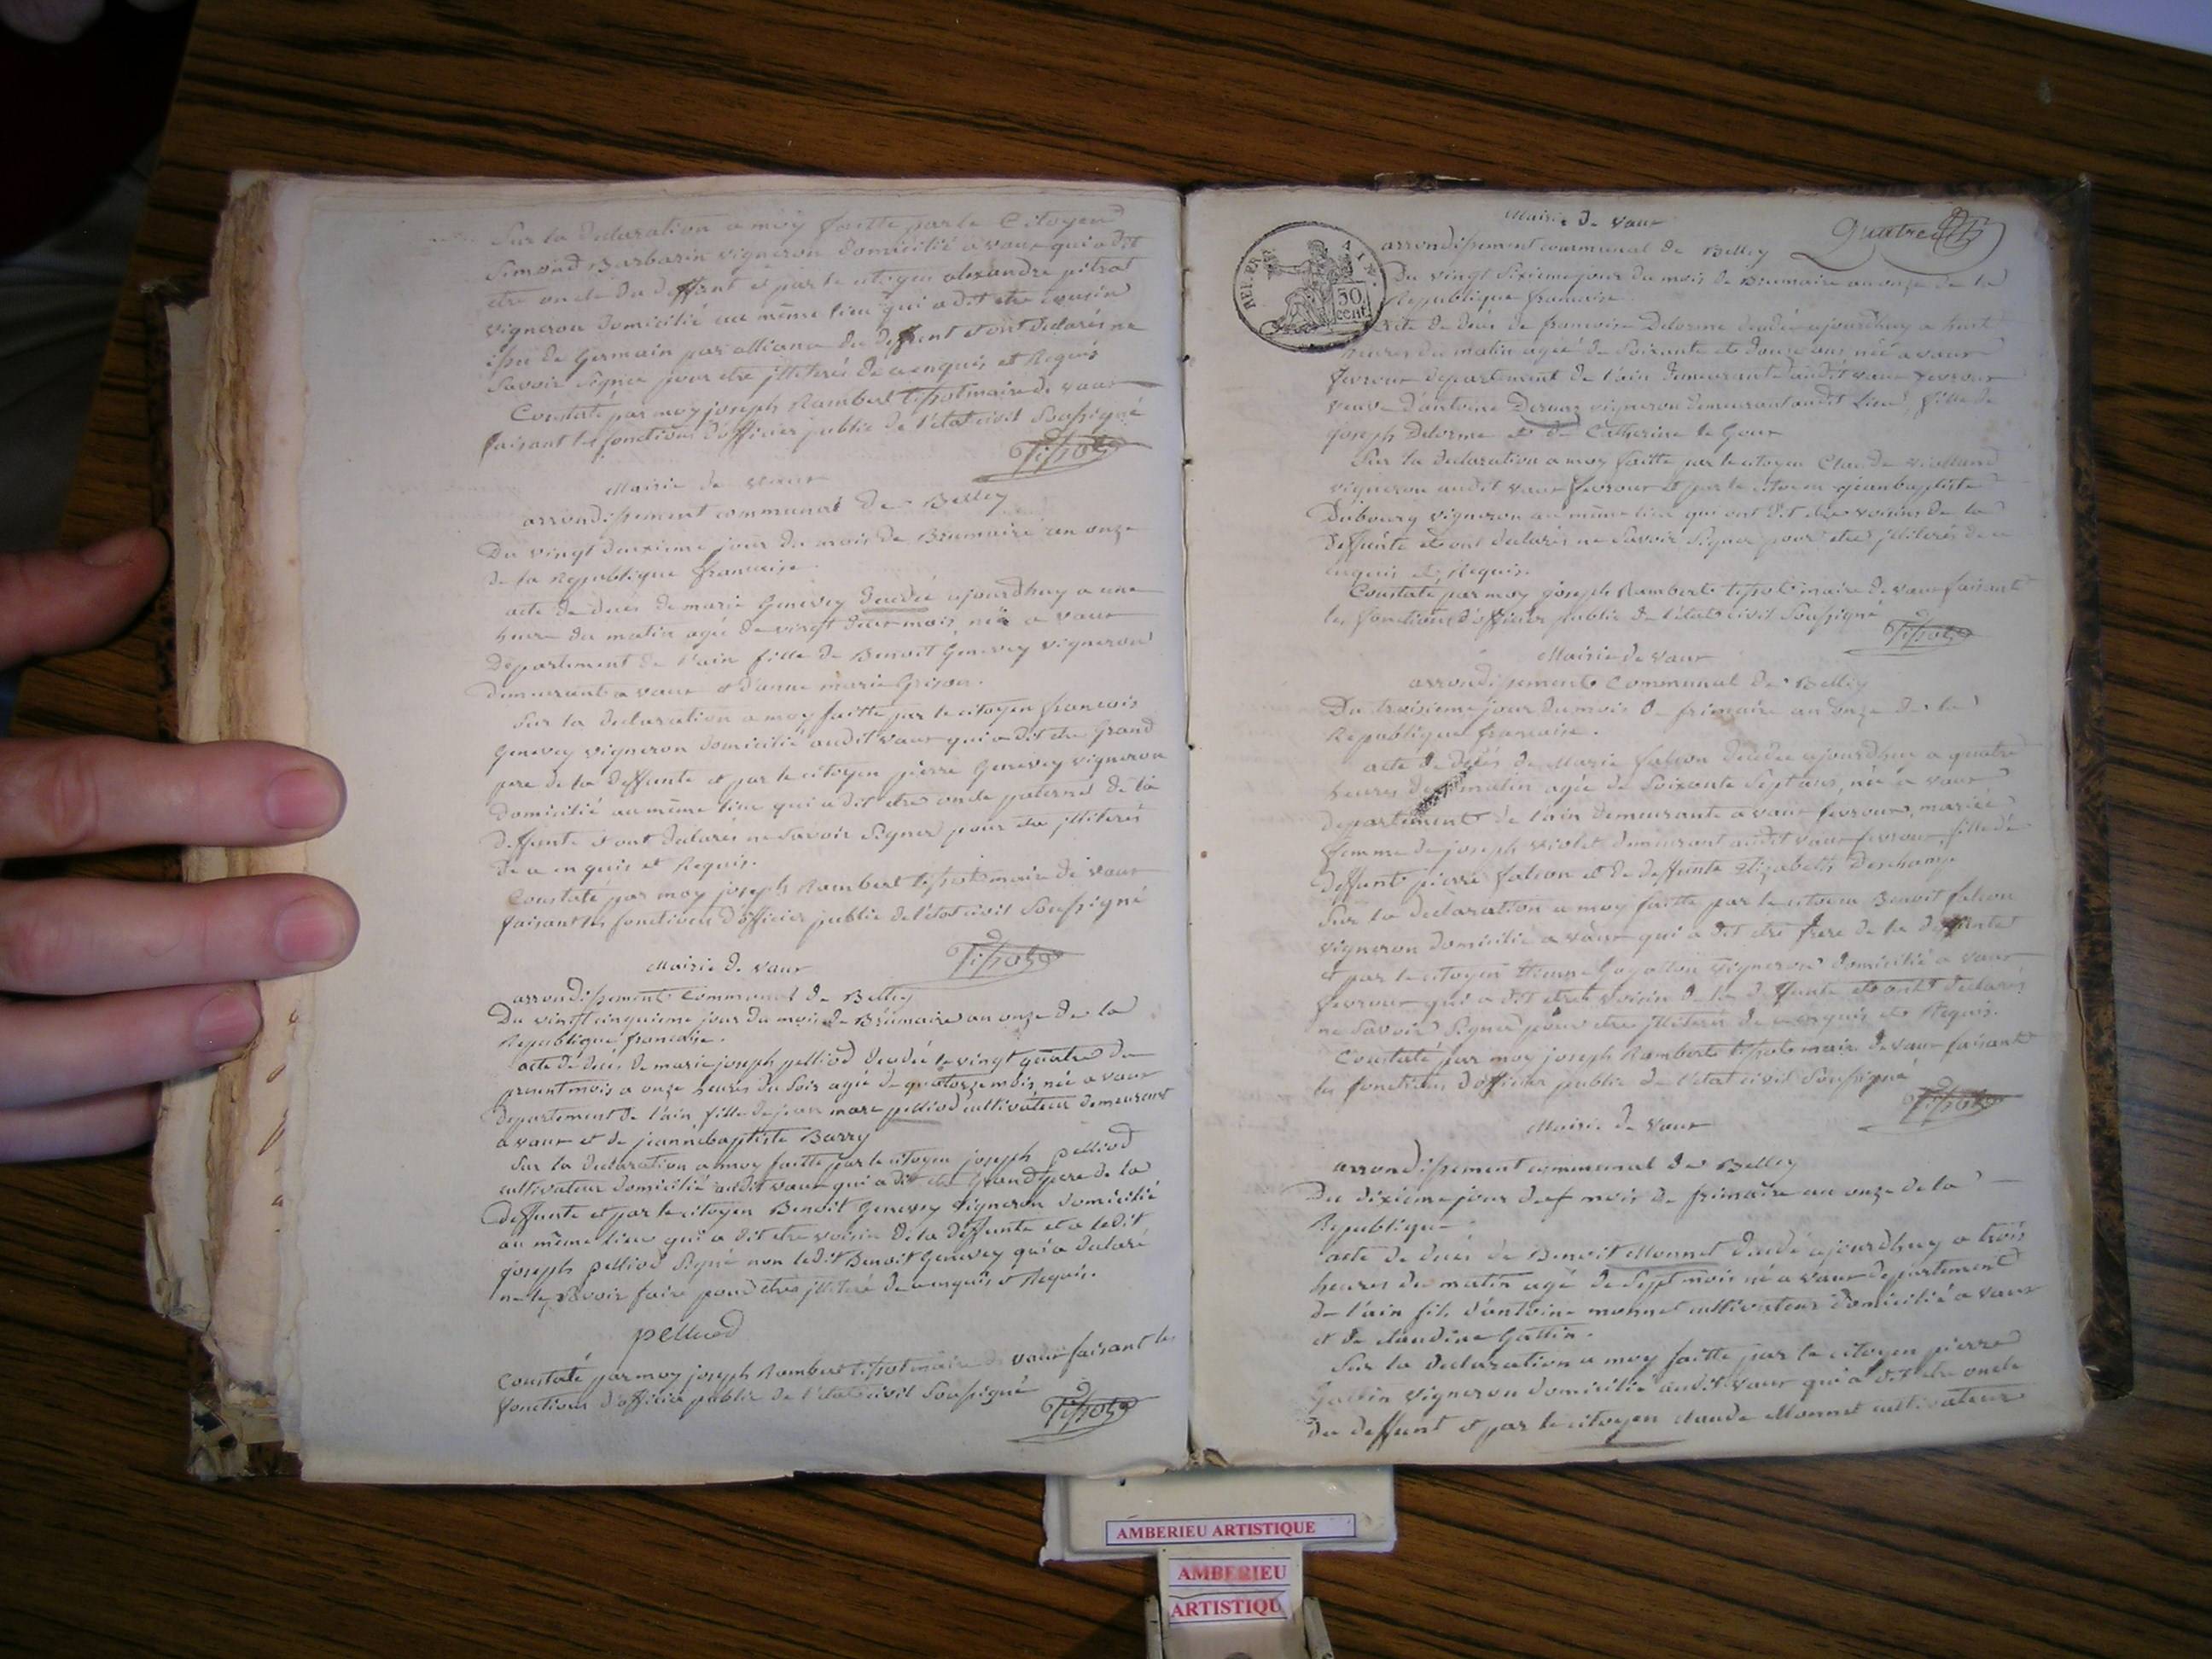 Sur la declaration a moy faitte par le Citoyen
Simond Barbarin vigneron domicilié a vaux qui a dit
etre oncle du deffunt et par le citoyen alexandre pitrat
vigneron domicilié au même lieu qui a dit etre cousin
issu de Germain par alliance du deffunt et ont declarés ne
savoir signer pour etre jlliterés de ce enquis et Requis
Constaté par moy joseph Rambert tissot maire de vaux
faisant les fonctions d'officier public de l'état civil Soussigné
Tissot
Mairie de vaux
arrondissement communal de Belley
Du vingt deuxieme jour du mois de Brumaire an onze
de la Republique francaise.
acte de deces de marie Genevey decedée ajourdhuy a une
heure du matin agée de vingt deux mois, née a vaux
Departement de l'ain fille de Benoit Genevey vigneron
demeurant a vaux et d'anne marie Grison.
Sur la declaration a moy faitte par le citoyen francois
Genevey vigneron domicilié audit vaux qui a dit etre Grand
pere de la deffunte et par le citoyen pierre Genevey vigneron
domicilié au même lieu qui a dit etre oncle paternel de la
deffunte et ont declarés ne savoir signer pour etre jlliterés
de ce enquis et Requis.
Constaté par moy joseph Rambert tissot maire de vaux
faisant les fonctions d'officier public de l'état civil Soussigné
Tissot
Mairie de vaux
arrondissement Communal de Belley
Du vingt cinquieme jour du mois de Brumaire an onze de la
Republique francaise.
acte de deces de marie joseph pelliod decedée le vingt quatre du
present mois a onze heures du soir agée de quatorze mois, née a vaux
departement de l'ain, fille de jean marc pelliod cultivateur demeurant
a vaux et de jeannebaptiste Barry
Sur la declaration a moy faitte par le citoyen joseph pelliod
cultivateur domicilié audit vaux qui a dit etre Grand pere de la
deffunte et par le citoyen Benoit Genevey vigneron domicilié
au même lieu qui a dit etre voisin de la deffunte et a ledit
joseph pelliod Signé non ledit Benoit Genevey qui a declaré
ne le savoir faire pour etre jlliteré de ce enquis et Requis.
pelliod
Constaté par moy joseph Rambert tissot maire de vaux faisant les
fonctions d'officier public de l'etat civil Soussigné
Tissot
Mairie de vaux
Quatre
REP. FRA
50
cent
arrondissement communal de Belley
Du vingt sixieme jour du mois de Brumaire an onze de la
Republique francaise.
Acte de deces de francoise Delorme decedée ajourdhuy a huit
heures du matin agée de soixante et douze ans, née a vaux
fevroux departement de l'ain demeurante audit vaux fevroux
veuve d'antoine vigneron demeurant audit Lieu, fille de
joseph Delorme et de Catherine le Goux
Sur la declaration a moy faitte par le citoyen Claude
vigneron audit vaux fevroux et par le citoyen jeanbaptiste
Dubourg vigneron au même lieu qui ont dit etre voisins de la
deffunte et ont declarés ne savoir signer pour etre jlliterés de ce
enquis et Requis.
Constaté par moy joseph Rambert tissot maire de vaux faisant
les fonctions d'officier public de l'etat civil Soussigné
Tissot
Mairie de vaux
arrondissement Communal de Belley
Du troisieme jour du mois de frimaire an onze de la
Republique francaise.
acte de deces de Marie falcon decedée ajourdhuy a quatre
heures du matin agée de soixante sept ans, née a vaux
departement de l'ain demeurante a vaux fevroux, mariée
femme de joseph violet demeurant audit vaux fevroux, fille de
deffunt pierre falcon et de deffunte Elizabeth Deschamp
Sur la declaration a moy faitte par le citoyen Benoit falcon
vigneron domicilié a vaux qui a dit etre frere de la deffunte
et par le citoyen vigneron domicilié a vaux
fevroux qui a dit etre voisin de la deffunte et ont declarés
ne savoir signer pour etre jlliterés de ce enquis et Requis.
Constaté par moy joseph Rambert tissot maire de vaux faisant
les fonctions d'officier public de l'etat civil Soussigné
Tissot
Mairie de vaux
arrondissement communal de Belley
Du dixieme jour du mois de frimaire an onze de la
Republique
acte de deces de Benoit Monnet decedé ajourdhuy a trois
heures du matin agé de sept mois né a vaux departement
de l'ain fils d'antoine monnet cultivateur domicilié a vaux
et de claudine Gattin.
Sur la declaration a moy faitte par le citoyen pierre
Gattin vigneron domicilié audit vaux qui a dit etre oncle
du deffunt et par le citoyen claude Monnet cultivateur
AMBERIEU ARTISTIQUE
AMBERIEU
ARTISTIQU